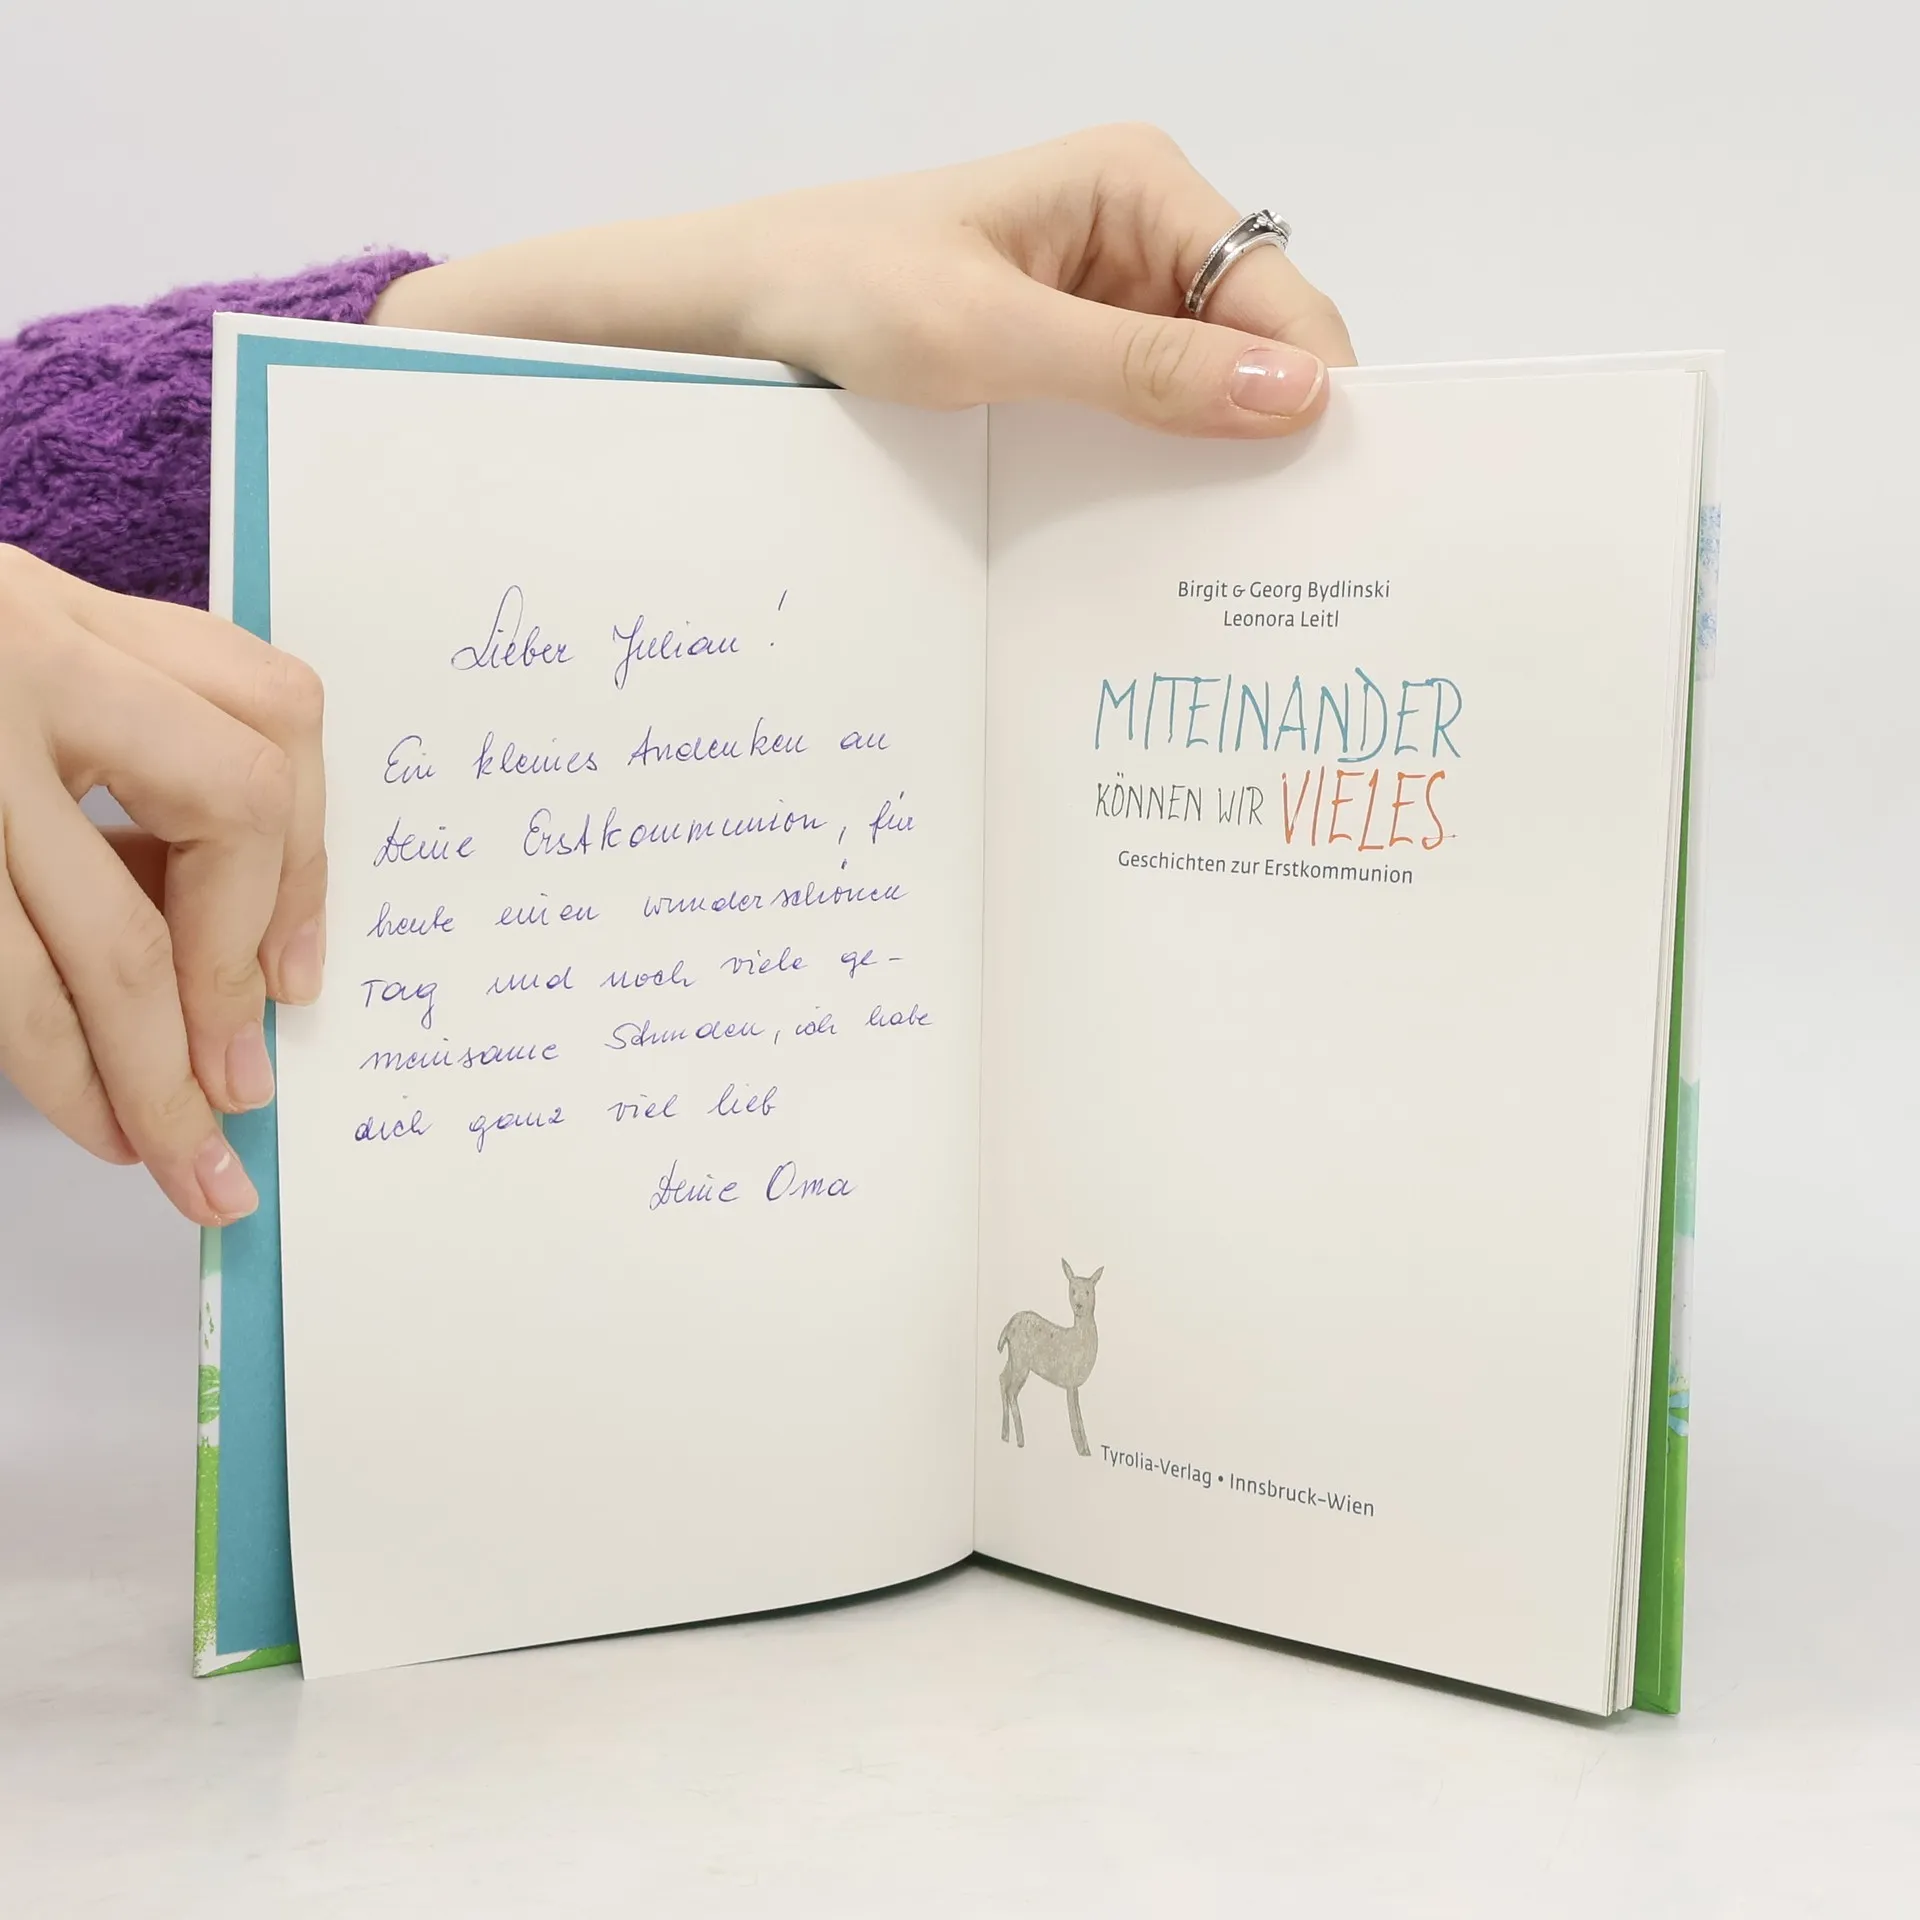 Lieber Julian!
Ein kleines Andenken an
Deine Erstkommunion, für
heute einen wunderschönen
Tag und noch viele ge-
meinsame Stunden, ich habe
dich ganz viel lieb
Deine Oma
Birgit & Georg Bydlinski
Leonora Leitl
MITEINANDER
KÖNNEN WIR VIELES
Geschichten zur Erstkommunion
Tyrolia-Verlag • Innsbruck-Wien